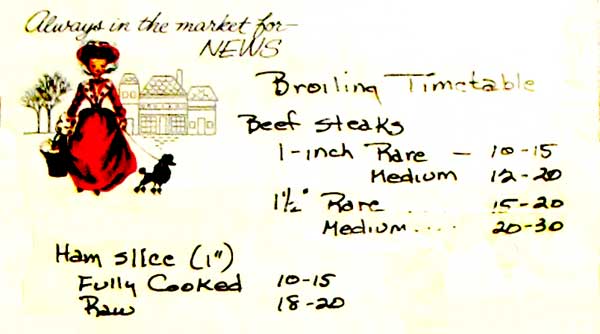 Always in the market for—
NEWS
Broiling Timetable
Beef steaks
1-inch Rare — 10-15
Medium 12-20
1½" Rare .... 15-20
Medium .... 20-30
Ham slice (1")
Fully Cooked 10-15
Raw 18-20